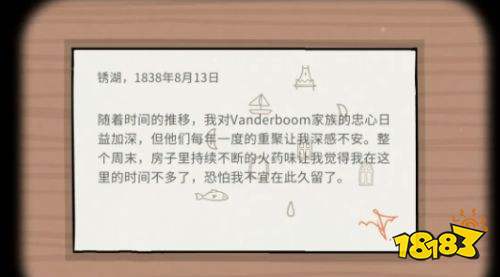 锈湖，1838年8月13日
随着时间的推移，我对Vanderboom家族的忠心日
益加深，但他们每年一度的重聚让我深感不安。整
个周末，房子里持续不断的火药味让我觉得我在这
里的时间不多了，恐怕我不宜在此久留了。
18183